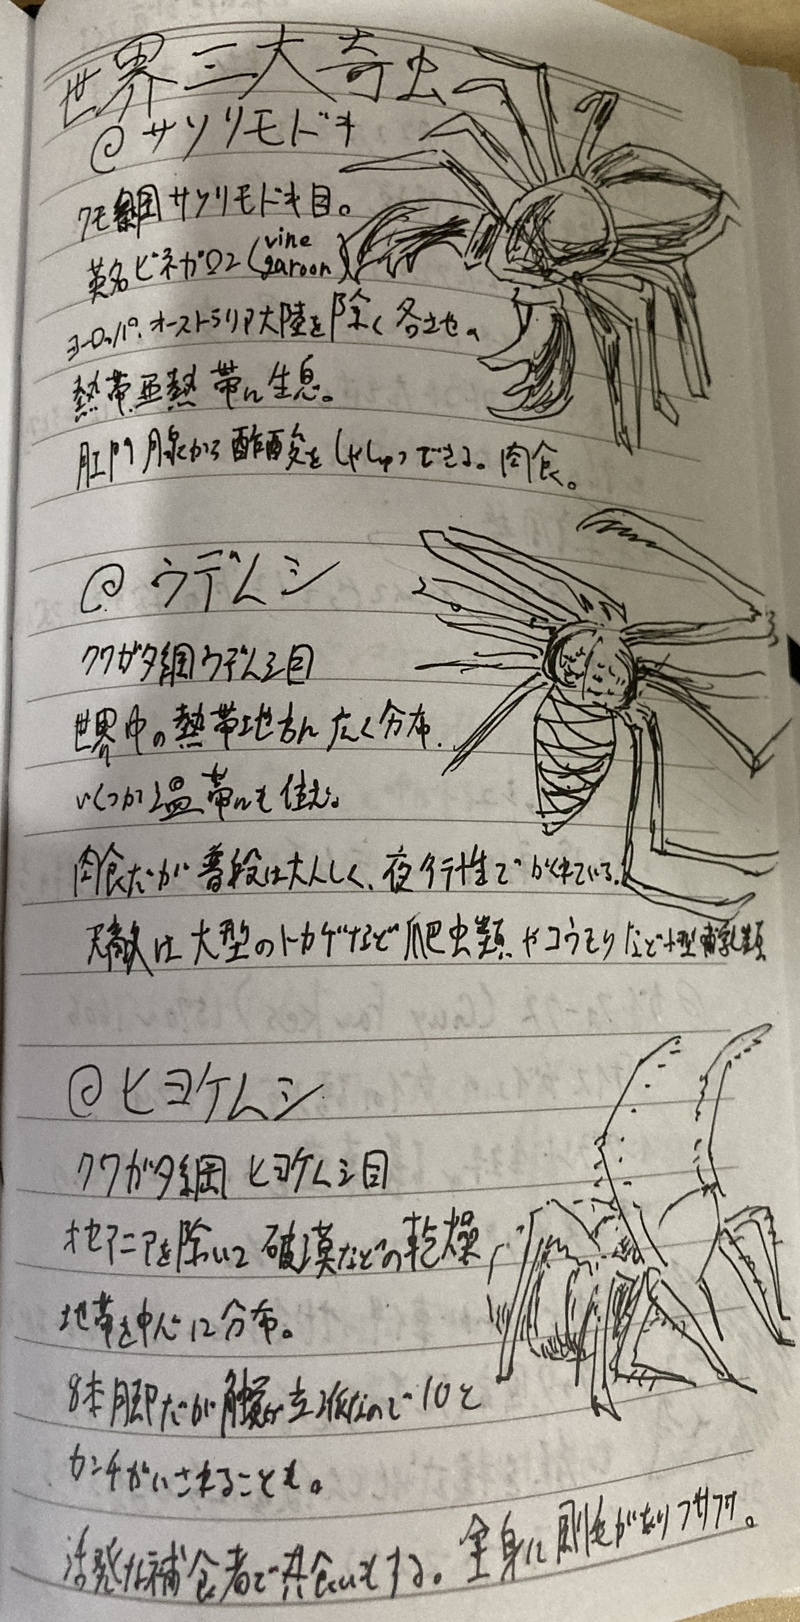 世界三大奇虫
@サソリモドキ
クモ綱サソリモドキ目。
英名ビネガロン(vine
garoon)
ヨーロッパ、オーストラリア大陸を除く各
熱帯亜熱帯に生息。
肛門腺から酢酸をしゃしゅつできる。肉食。
@ウデムシ
クワガタ綱ウデムシ目
世界中の熱帯地方に広く分布。
いくつか温帯にも住む。
肉食だが普段は大人しく、夜行性でかくれている。
天敵は大型のトカゲなど爬虫類やコウモリなど小型哺乳類
@ヒヨケムシ
クワガタ綱ヒヨケムシ目
オセアニアを除いて砂漠などの乾燥
地帯を中心に分布。
8本脚だが触覚が立派なので10と
カンチがいされることも。
活発な補食者で共食いもする。全身に剛毛がありフサフサ。